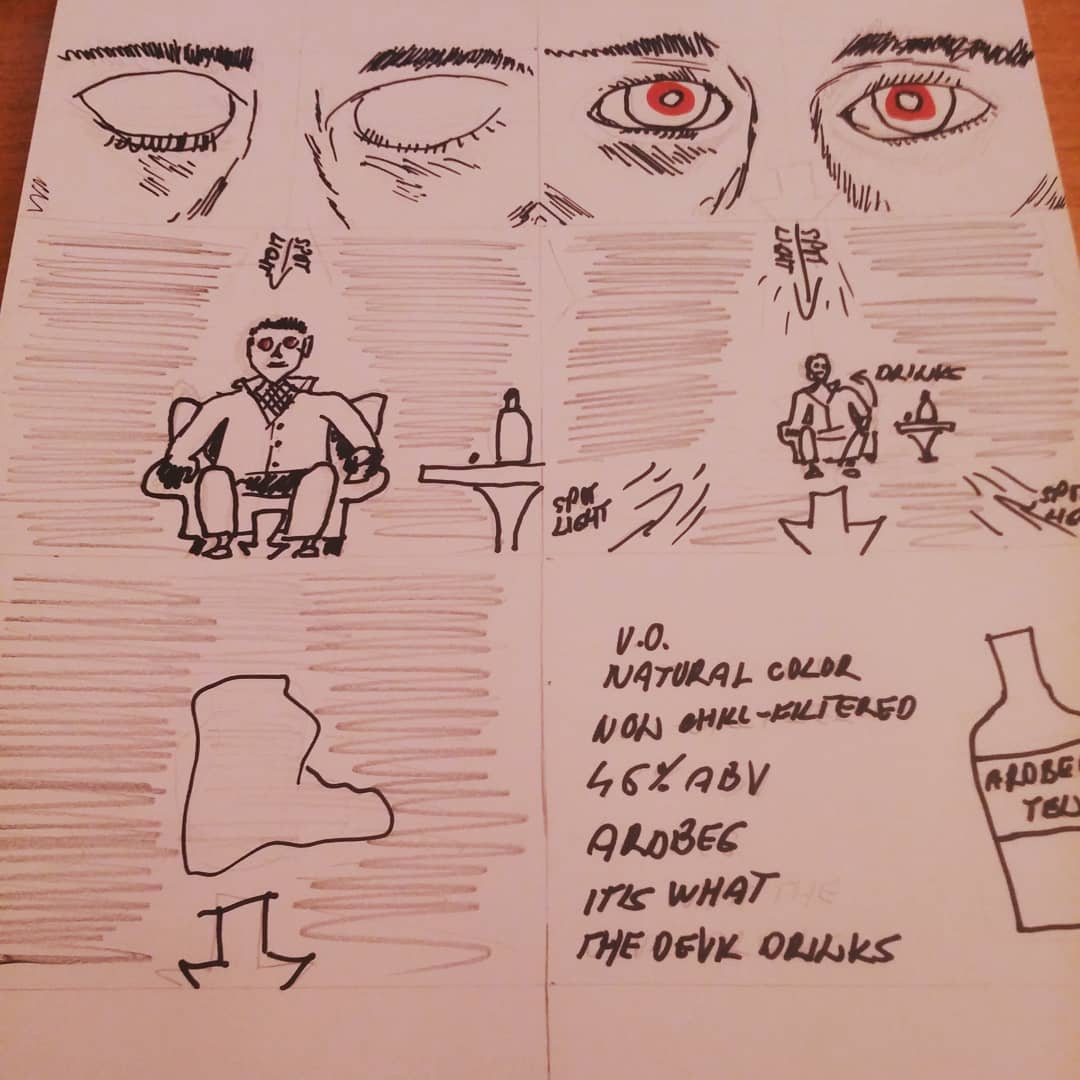 SPOT
LIGHT
SPOT
LIGHT
DRINKS
SPOT
LIGHT
SPOT
LIG
V.O.
NATURAL COLOR
NON CHILL-FILTERED
46% ABV
ARDBEG
IT IS WHAT THE
THE DEVIL DRINKS
ARDBE
TEN